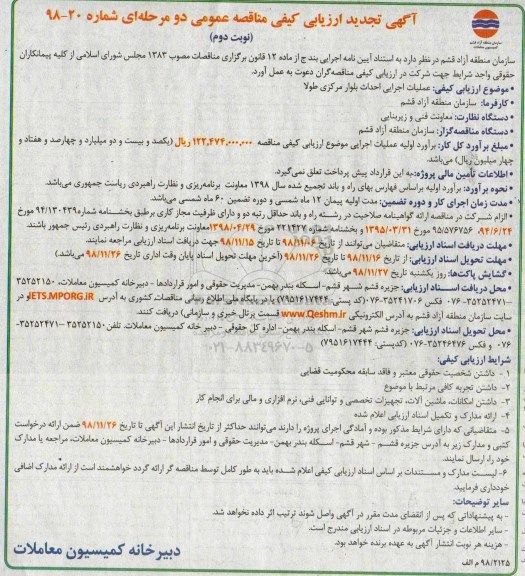 آگهی تجدید ارزیابی کیفی مناقصه عمومی دو مرحله‌ای شماره ۲۰-۹۸
(نوبت دوم)
سازمان منطقه آزاد قشم در نظر دارد به استناد آیین نامه اجرایی بند ج از ماده ۱۲ قانون برگزاری مناقصات مصوب ۱۳۸۳ مجلس شورای اسلامی از کلیه پیمانکاران
حقوقی واجد شرایط جهت شرکت در ارزیابی کیفی مناقصه‌گران دعوت به عمل آورد.
• موضوع ارزیابی کیفی: عملیات اجرایی احداث بلوار مرکزی طولا
• کارفرما: سازمان منطقه آزاد قشم
• دستگاه نظارت: معاونت فنی و زیربنایی
• دستگاه مناقصه‌گزار: سازمان منطقه آزاد قشم
• مبلغ برآورد کل کار: برآورد اولیه عملیات اجرایی موضوع ارزیابی کیفی مناقصه ۱۲۲,۴۷۴,۰۰۰,۰۰۰ ریال (یکصد و بیست و دو میلیارد و چهارصد و هفتاد و
چهار میلیون ریال) می‌باشد.
• اطلاعات تأمین مالی پروژه: به این قرارداد پیش پرداخت تعلق نمی‌گیرد.
• نحوه برآورد: برآورد اولیه براساس فهارس بهای راه و باند تجمیع شده سال ۱۳۹۸ معاونت برنامه‌ریزی و نظارت راهبردی ریاست جمهوری می‌باشد.
• مدت زمان اجرای کار و دوره تضمین: مدت اولیه پیمان ۱۲ ماه شمسی و دوره تضمین ۶۰ ماه شمسی می‌باشد.
• الزام شرکت در مناقصه ارائه گواهینامه صلاحیت در رشته راه و باند حداقل رتبه دو و دارای ظرفیت مجاز کاری برطبق بخشنامه شماره ۹۴/۱۳۰۴۳۹ مورخ
۹۴/۶/۲۴ ۹۵/۵۷۶۷۵۶ مورخ ۱۳۹۵/۰۳/۳۱ و بخشنامه شماره ۲۲۱۴۲۷ مورخ ۱۳۹۸/۰۴/۲۹ معاونت برنامه‌ریزی و نظارت راهبردی رئیس جمهور باشند.
• مهلت دریافت اسناد ارزیابی: متقاضیان می‌توانند از تاریخ ۹۸/۱۱/۰۶ تا تاریخ ۹۸/۱۱/۱۵ جهت دریافت اسناد ارزیابی مراجعه نمایند.
• مهلت تحویل اسناد ارزیابی: از تاریخ ۹۸/۱۱/۱۶ تا تاریخ ۹۸/۱۱/۲۶ (آخرین مهلت تحویل اسناد پایان وقت اداری تاریخ ۹۸/۱۱/۲۶ می‌باشد.)
• گشایش پاکت‌ها: روز یکشنبه تاریخ ۹۸/۱۱/۲۷ می‌باشد.
• محل دریافت اسناد ارزیابی: جزیره قشم شهر قشم- اسکله بندر بهمن-مدیریت حقوقی و امور قراردادها - دبیرخانه کمیسیون معاملات، ۳۵۲۵۲۱۵۰
-۰۷۶-۳۵۲۵۲۴۷۱ فکس ۳۵۲۴۱۷۰۶-۰۷۶ (کد پستی: ۷۹۵۱۶۱۷۴۴۴) یا در پایگاه ملی اطلاع رسانی مناقصات کشوری به آدرس IETS.MPORG.IR و در
سایت سازمان منطقه آزاد قشم به آدرس الکترونیکی www.Qeshm.ir قسمت پرتال خبری و سازمانی) دریافت کنند.
• محل تحویل اسناد ارزیابی: جزیره قشم شهر قشم- اسکله بندر بهمن- اداره کل حقوقی - دبیر خانه کمیسیون معاملات، تلفن ۳۵۲۵۲۱۵۰ -۳۵۲۵۲۴۷۱-
۰۷۶ و فکس ۳۵۲۴۶۴۷۶-۰۷۶ (کدپستی: ۷۹۵۱۶۱۷۴۴۴)
شرایط ارزیابی کیفی:
۱- داشتن شخصیت حقوقی معتبر و فاقد سابقه محکومیت قضایی
۲- داشتن تجربه کافی مرتبط با موضوع
۳- داشتن امکانات، ماشین آلات، تجهیزات تخصصی و توانایی فنی، نرم افزاری و مالی برای انجام کار
۴- ارائه مدارک و تکمیل اسناد ارزیابی اعلام شده
۵- متقاضیانی که دارای شرایط مذکور بوده و آمادگی اجرای پروژه را دارند می‌توانند حداکثر از تاریخ انتشار این آگهی تا تاریخ ۹۸/۱۱/۲۶ ضمن ارائه درخواست
کتبی و مدارک زیر به آدرس جزیره قشم - شهر قشم- اسکله بندر بهمن- مدیریت حقوقی و امور قراردادها - دبیرخانه کمیسیون معاملات، مراجعه یا مدارک
خود را، ارسال نمایند.
۶- لیست مدارک و مستندات بر اساس اسناد ارزیابی کیفی اعلام شده باید به طور کامل توسط مناقصه گر ارائه گردد خواهشمند است از ارائه مدارک اضافی
خودداری فرمایید
سایر توضیحات:
- به پیشنهاداتی که پس از انقضای مدت مقرر در آگهی واصل شوند ترتیب اثر داده نخواهد شد.
- سایر اطلاعات و جزئیات مربوطه در اسناد ارزیابی مندرج است.
- هزینه هر نوبت انتشار آگهی به عهده برنده خواهد بود.
دبیرخانه کمیسیون معاملات
۹۸/۲۱۲۵ م الف